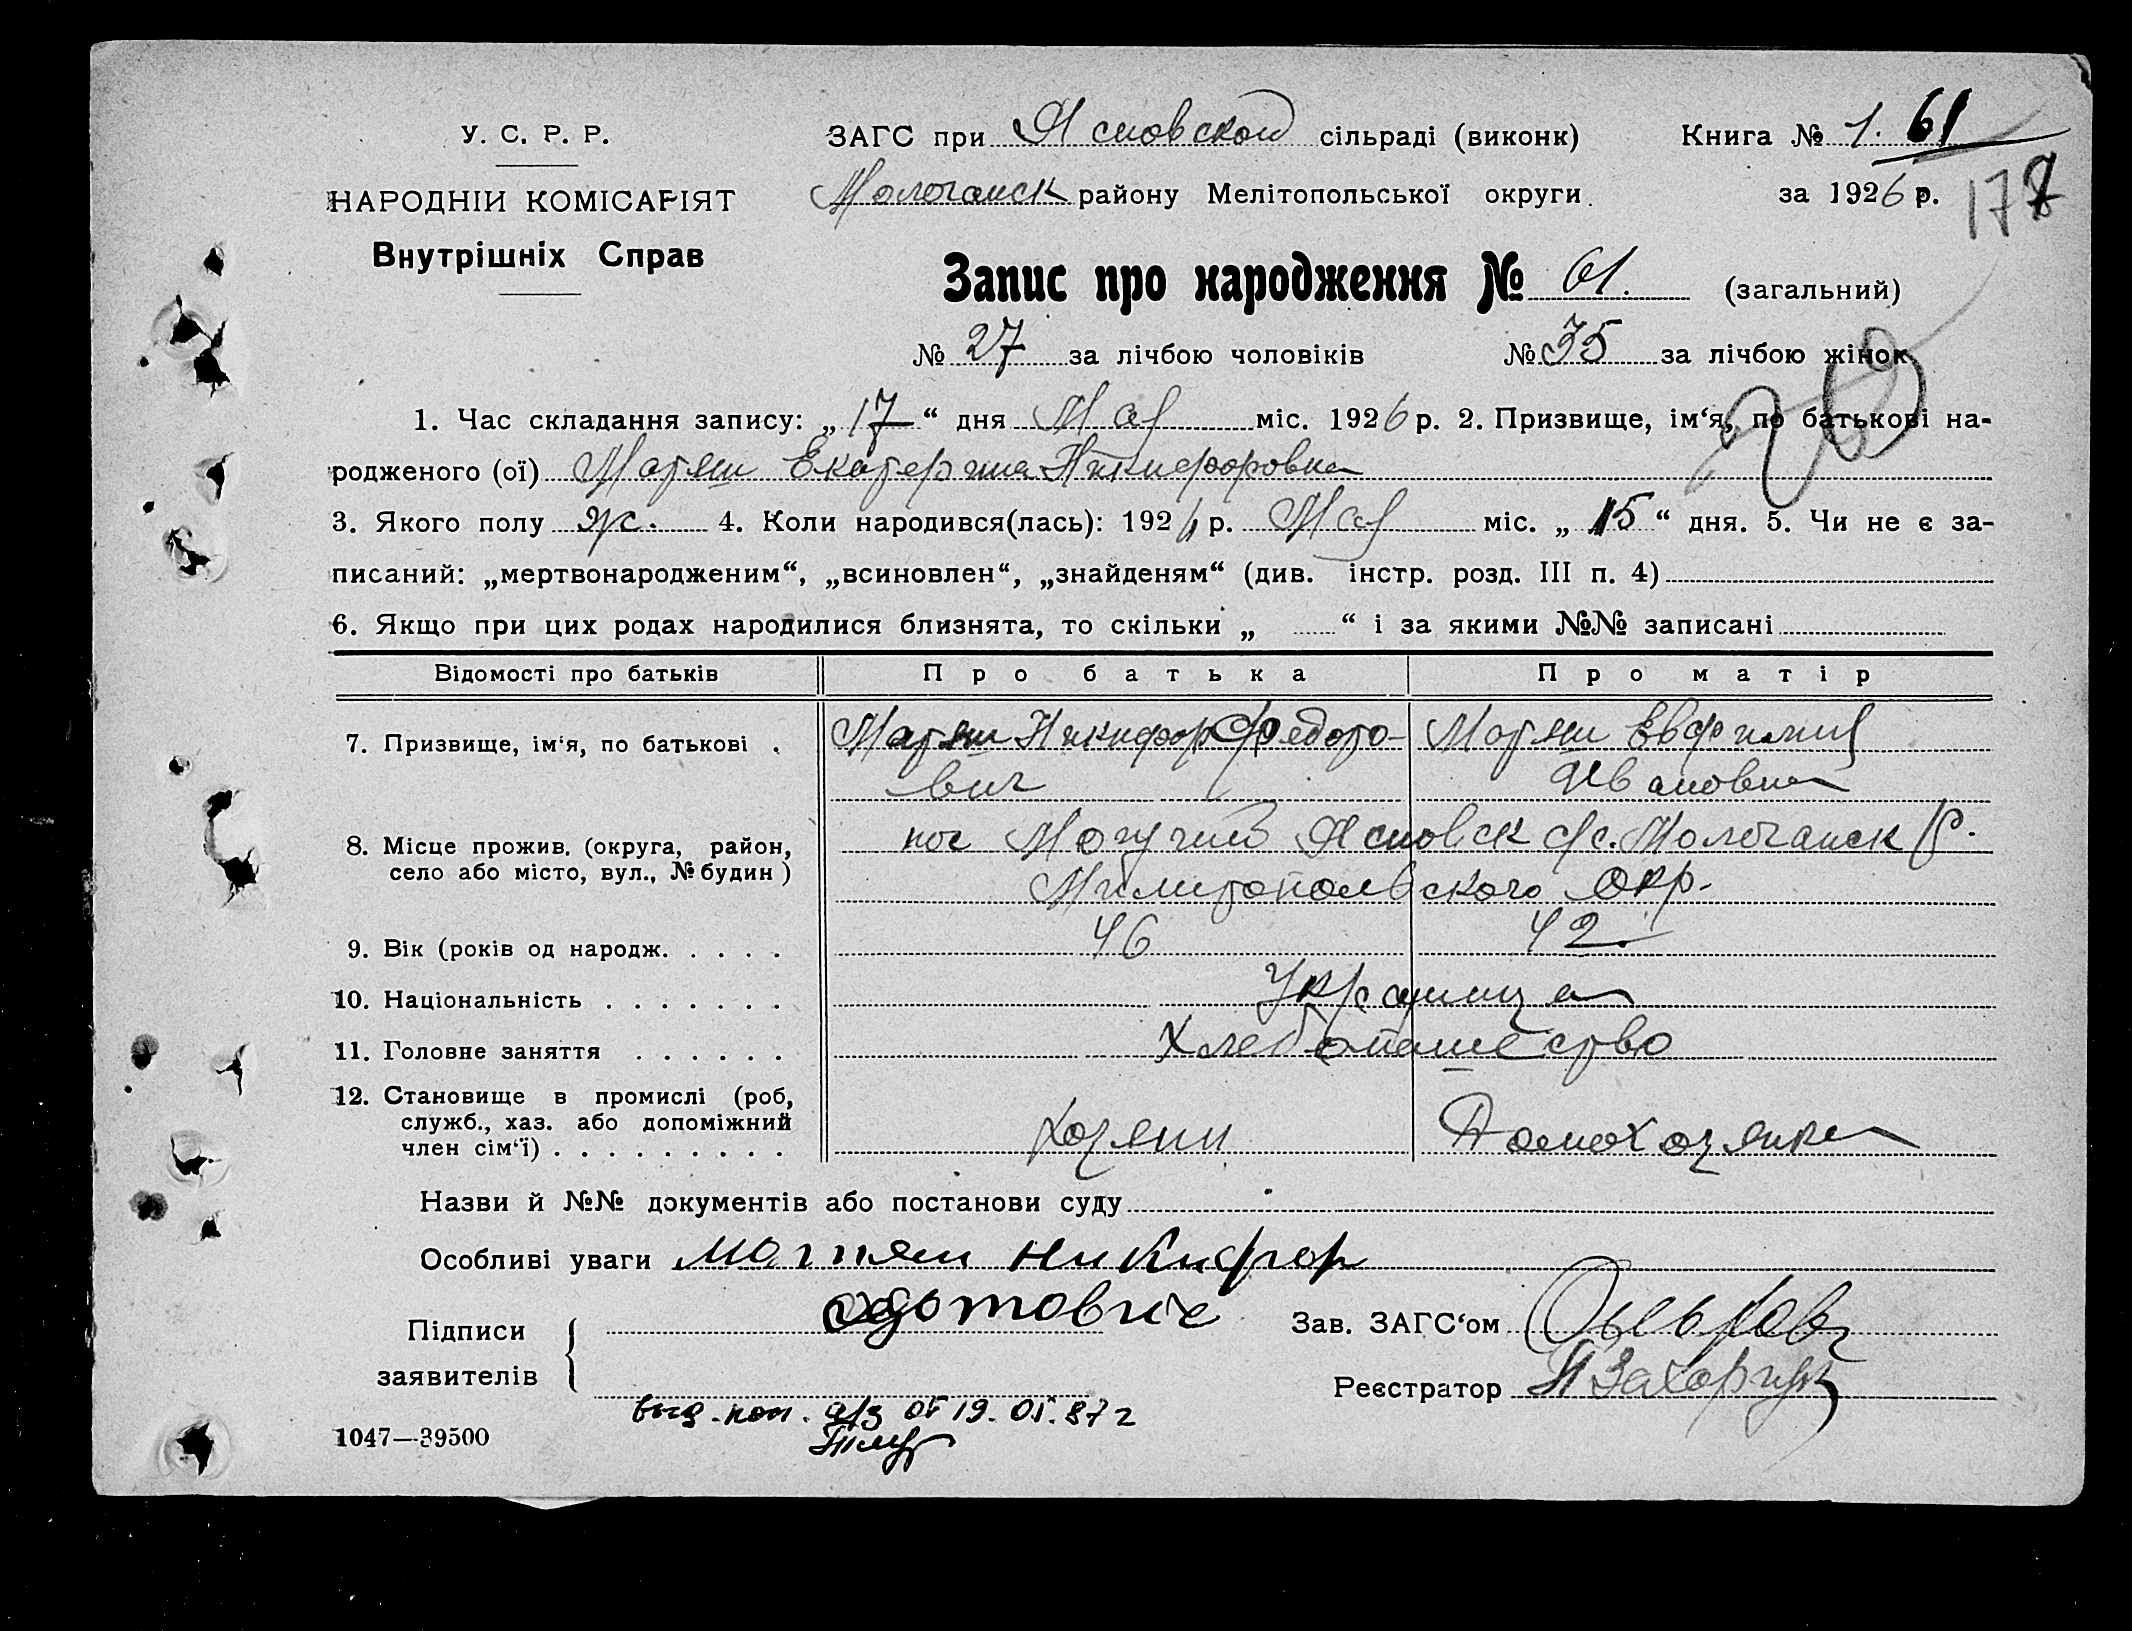 У. С. Р. Р.
НАРОДНІЙ КОМІСАРІЯТ
Внутрішніх Справ
ЗАГС при Ясновской сільраді (виконк) Книга № 1. 61
Молочанск району Мелітопольської округи. за 1926 р. 177
Запис про народження № 61. (загальний)
№ 27 за лічбою чоловіків № 35 за лічбою жінок
1. Час складання запису: „17“ дня Мая міс. 1926 р. 2. Призвище, ім‘я, по батькові на-
родженого (ої) Матяш Екатерина Никифоровна
3. Якого полу ж. 4. Коли народився(лась): 1926 р. Мая міс. „15“ дня. 5. Чи не є за-
писаний: „мертвонародженим“, „всиновлен“, „знайденям“ (див. інстр. розд. III п. 4)
6. Якщо при цих родах народилися близнята, то скільки „ “ і за якими №№ записані
Відомості про батьків Про батька Про матір
7. Призвище, ім‘я, по батькові . Матяш Никифор Федото- Матяш Евфимия
вич Ивановна
8. Місце прожив. (округа, район, пос Могучий Ясновск с/с. Молочанск р.
село або місто, вул., № будин) Милитопольского окр.
9. Вік (років од народж. . . . . 46 42
10. Національність . . . . . . . Украинца
11. Головне заняття . . . . . . Хлебопашество
12. Становище в промислі (роб,
служб., хаз. або допоміжний
член сім‘ї) . . . . . . . . . Хозяин Домохозяйка
Назви й №№ документів або постанови суду
Особливі уваги Матяш Никифор
Підписи Зав. ЗАГС‘ом
заявителів
Реєстратор
выд. пов. а/з от 19. 05. 87 г
1047—39500